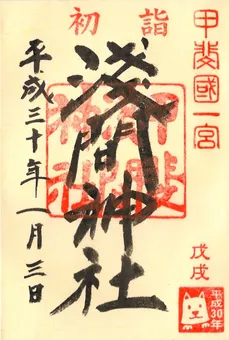 初詣
甲斐國一宮
浅間神社
甲斐
神社
平成三十年一月三日
戊戌
平成30年